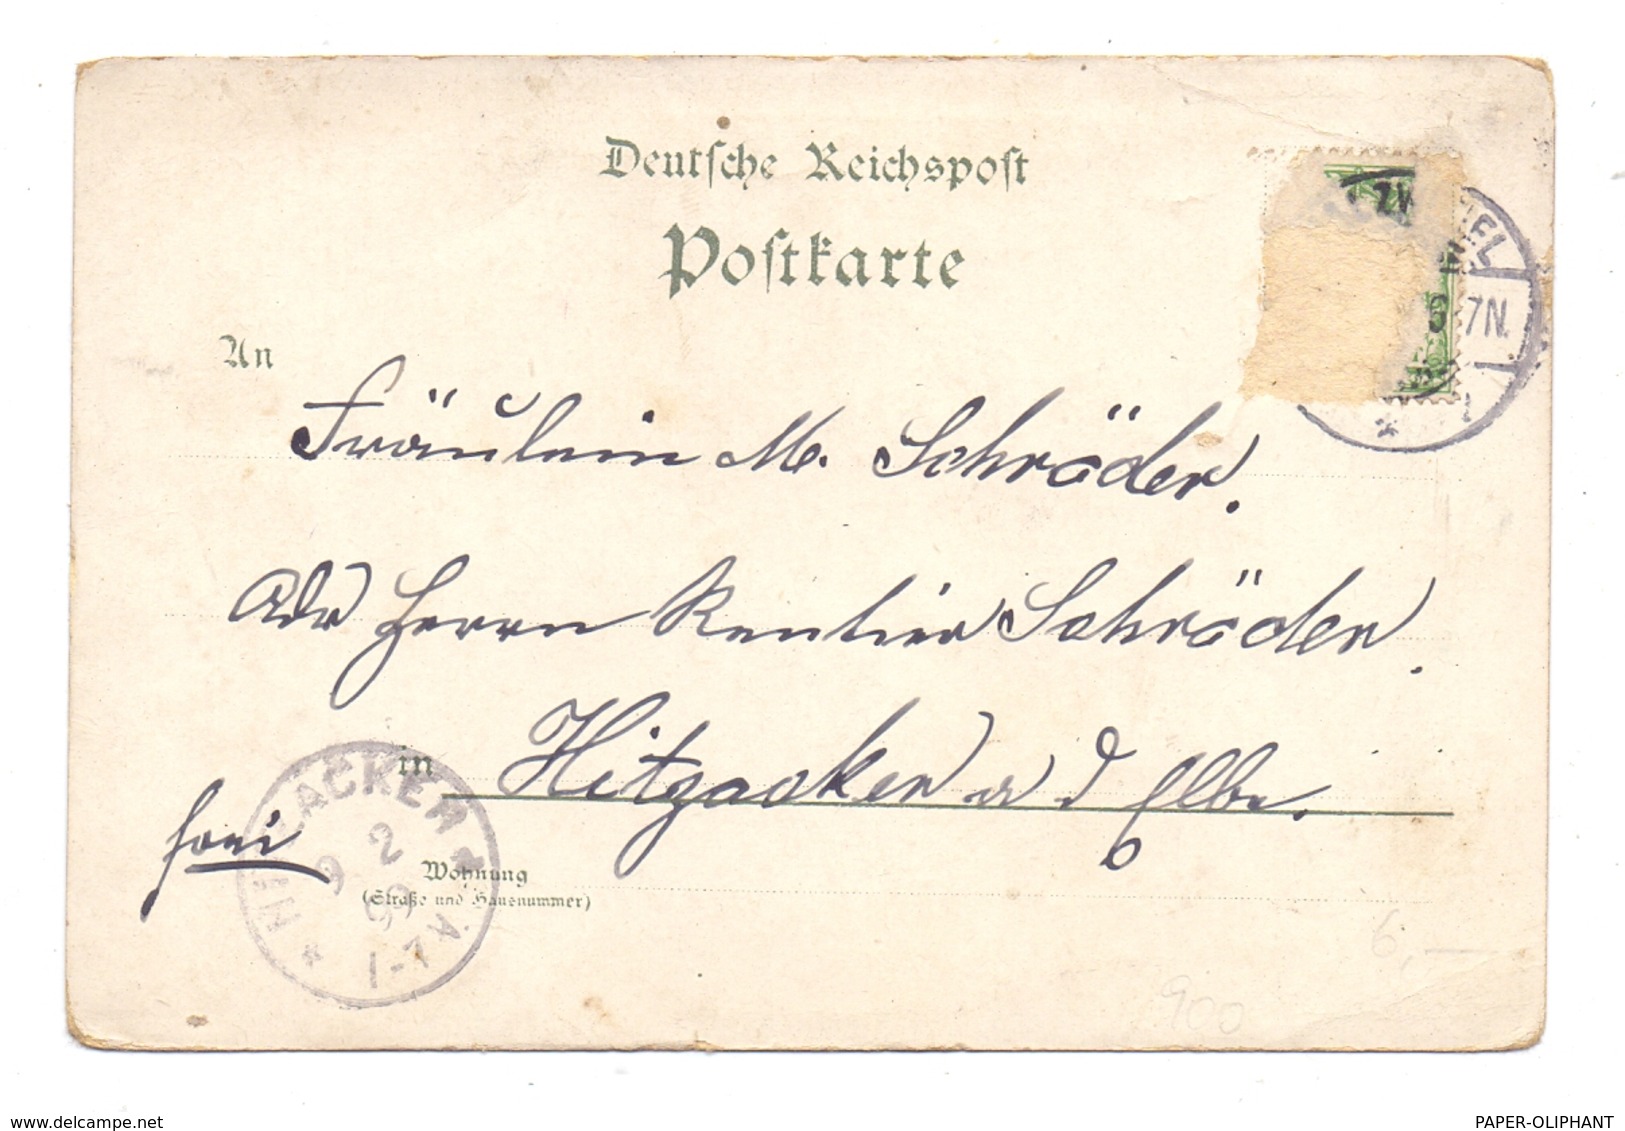 Deutsche Reichspost
Postkarte
An
Fräulein M. Schröder.
Adr Herrn Rentier Schröder.
in Hitzacker a d Elbe.
frei
Wohnung
(Straße und Hausnummer)
HITZACKER
9 2
99
1-7N.
IEL
7N.
6,—
900
www.delcampe.net
PAPER-OLIPHANT